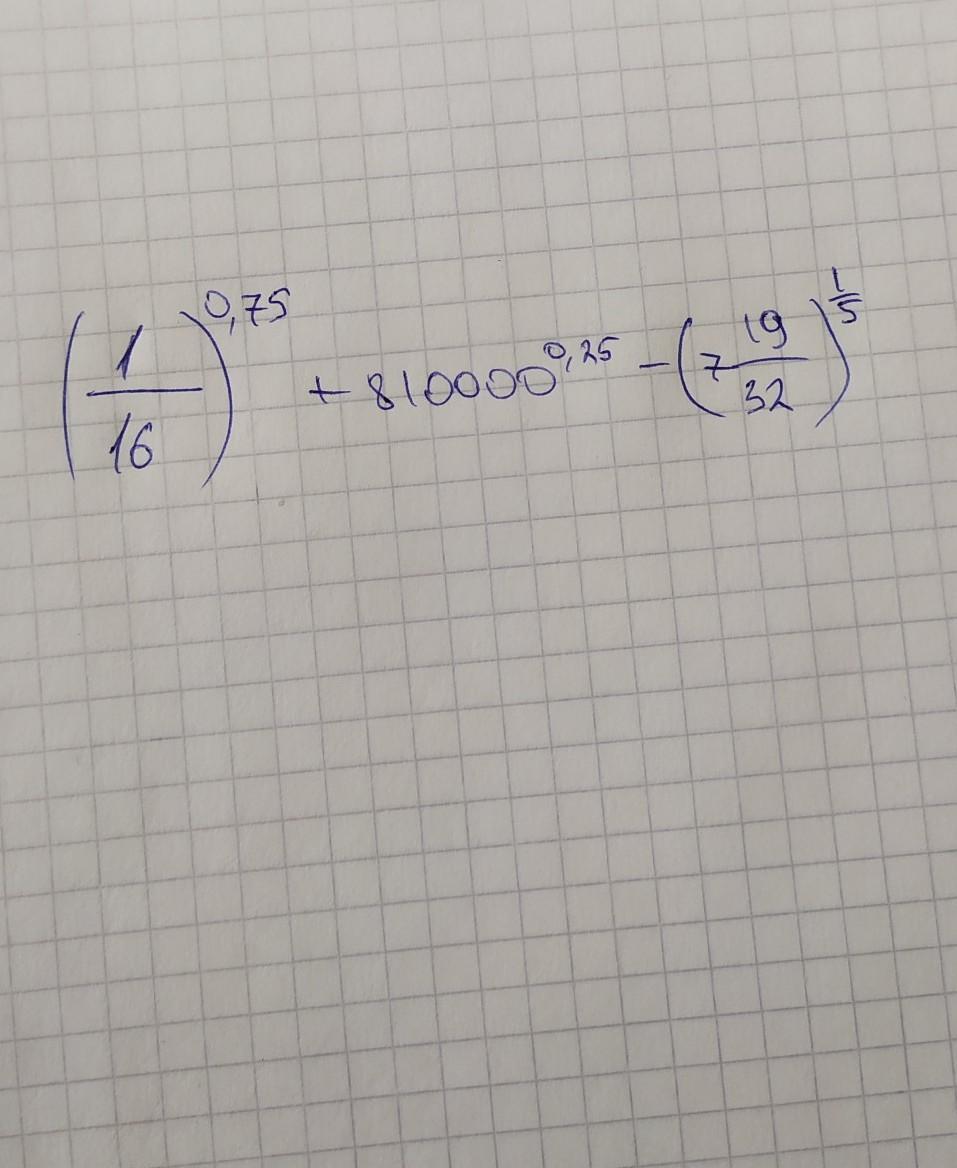 (1/16)^0,75 + 810000^0,25 - (7 19/32)^1/5